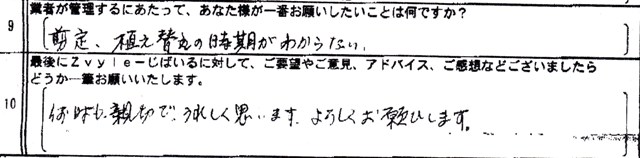 業者が管理するにあたって、あなた様が一番お願いしたいことは何ですか?
9
剪定、植え替えの時期がわからない。
最後にZvyleーじばいるに対して、ご要望やご意見、アドバイス、ご感想などございましたら
どうか一筆お願いいたします。
10
何時も親切で、うれしく思います。よろしくお願いします。